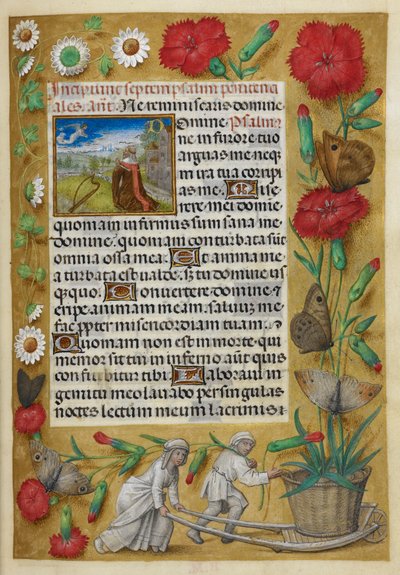 Incipiunt septem psalmi peniten⁊ci
ales. añt. Ne reminiscaris domine
Domine Psalm⁹
ne in furore tuo
arguas me neq;
in ira tua corripi
as me. Mise
rere mei domie
quoniam infirmus sum sana me
domine: quoniam conturbata sūt
omnia ossa mea. Et anima me
a turbata est valde: s; tu domine us
q;quo. Convertere domine ⁊
eripe animam meam: saluū me
fac ꝓpter misericordiam tuam.
Quoniam non est in morte qui
memor sit tui in inferno aūt quis
confitebitur tibi. Laboraui in
gemitu meo lavabo per singulas
noctes lectum meum lacrimis: